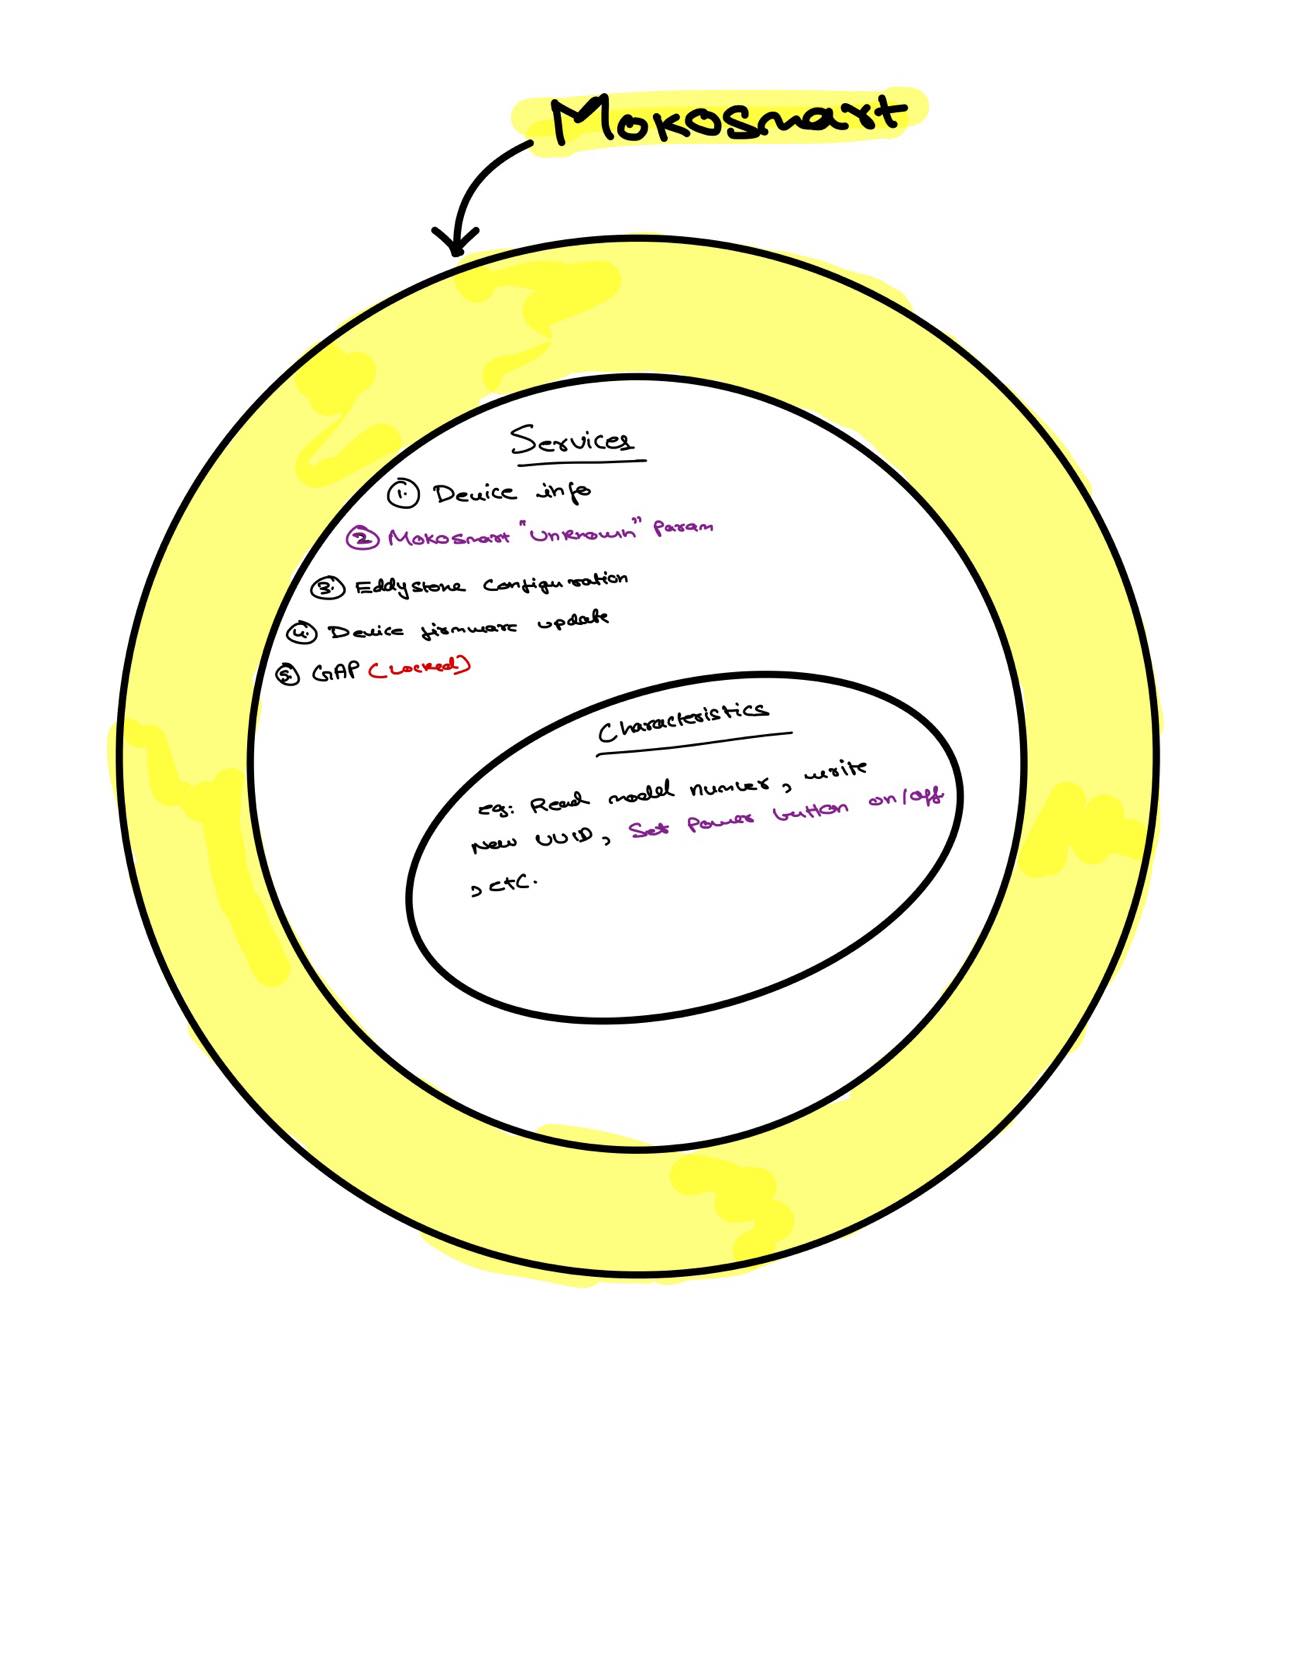 Mokosmart
Services
1. Device info
2. Mokosmart "Unknown" Param
3. Eddystone Configuration
4. Device firmware update
5. GAP (Locked)
Characteristics
eg: Read model number, write
New UUID, Set Power button on/off
, etc.